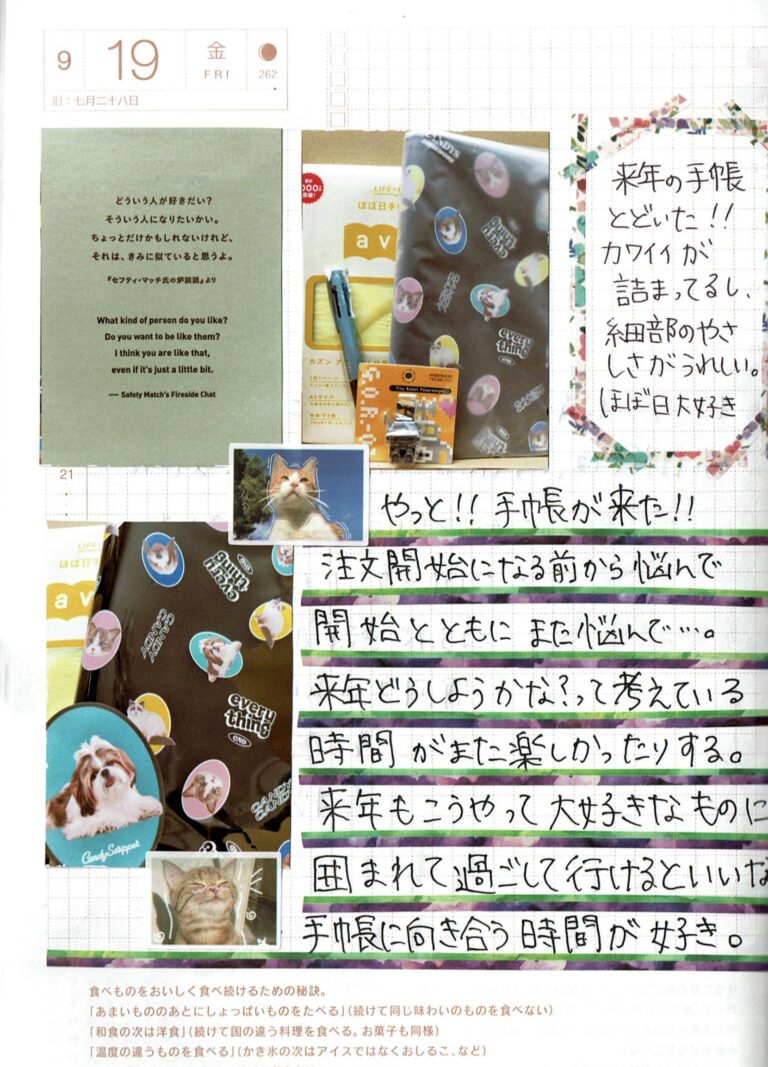 9
19
金
FRI
262
旧：七月二十八日
どういう人が好きだい？
そういう人になりたいかい。
ちょっとだけかもしれないけれど、
それは、きみに似ていると思うよ。
『セフティ・マッチ氏の炉談話』より
What kind of person do you like?
Do you want to be like them?
I think you are like that,
even if it's just a little bit.
— Safety Match's Fireside Chat
CANDYS
ほぼ日手
av
カズン
A5サイズ
Tiny Robot Paperweight
every
thing
来年の手帳
とどいた!!
カワイイが
詰まってるし、
細部のやさ
しさがうれしい。
ほぼ日大好き
21
やっと!! 手帳が来た!!
注文開始になる前から悩んで
開始とともにまた悩んで…。
来年どうしようかな?って考えている
時間がまた楽しかったりする。
来年もこうやって大好きなものに
囲まれて過ごして行けるといいな
手帳に向き合う時間が好き。
LIFE
ほぼ日
av
every
thing
CND
CANDY
every
thing
CND
CANDY
CANDY
CandyStripper
食べものをおいしく食べ続けるための秘訣。
「あまいもののあとにしょっぱいものをたべる」（続けて同じ味わいのものを食べない）
「和食の次は洋食」（続けて国の違う料理を食べる。お菓子も同様）
「温度の違うものを食べる」（かき氷の次はアイスではなくおしるこ、など）